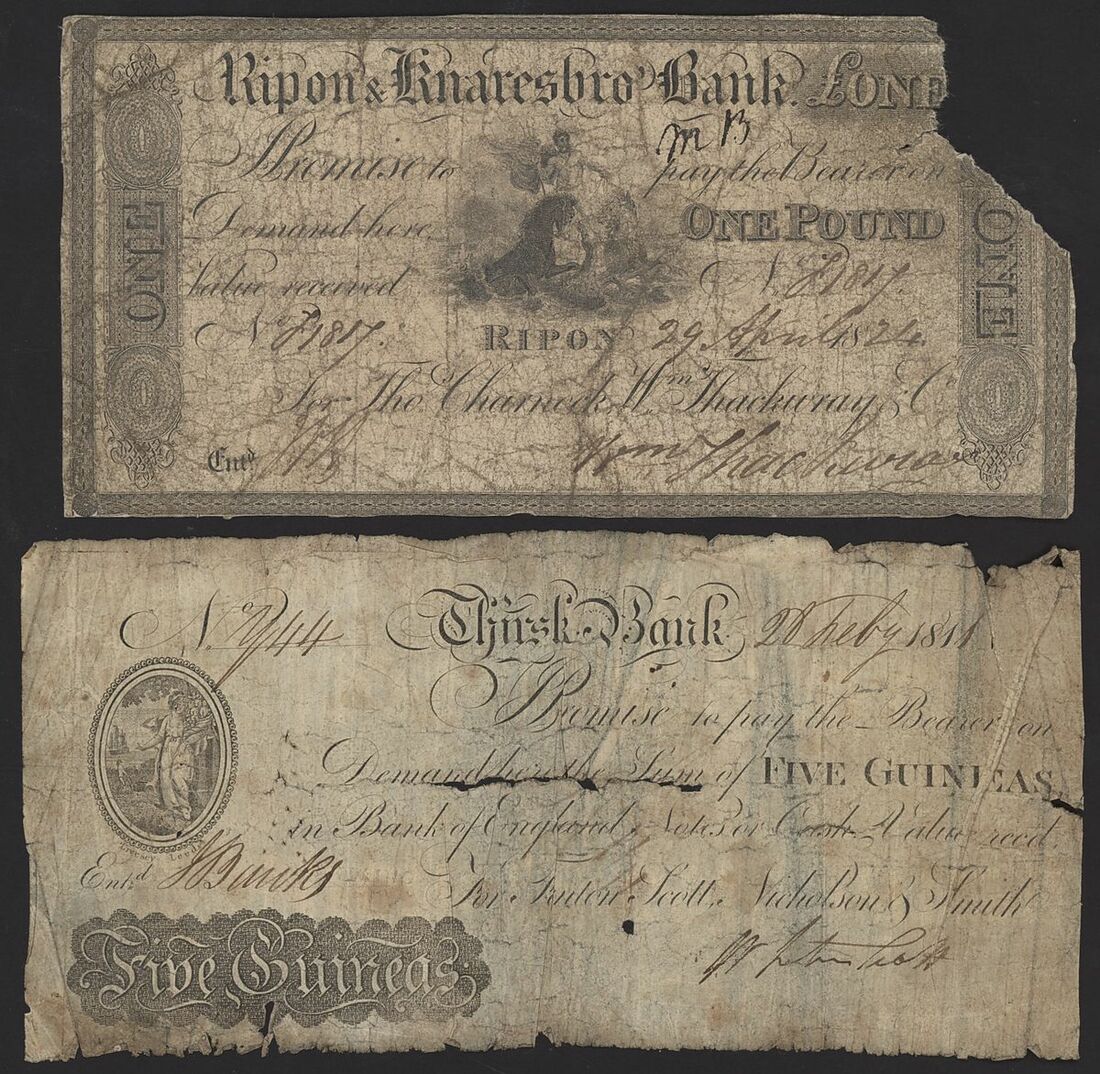 Ripon & Knaresbro' Bank. £ONE
M B
I Promise to pay the Bearer on
Demand here ONE POUND
Value received No. J1817.
No. J1817. RIPON 29 April 1824
For Tho.s Charnock Wm. Thackwray & Co.
Entd.
Wm Thackwray
ONE
ONE
No. 944 Thirsk Bank 28 Feby 1811
I Promise to pay the Bearer on
Demand here the Sum of FIVE GUINEAS,
in Bank of England Notes or Cash Value recd.
Entd. Binks For Britain Scott, Nicholson & Smith
Five Guineas